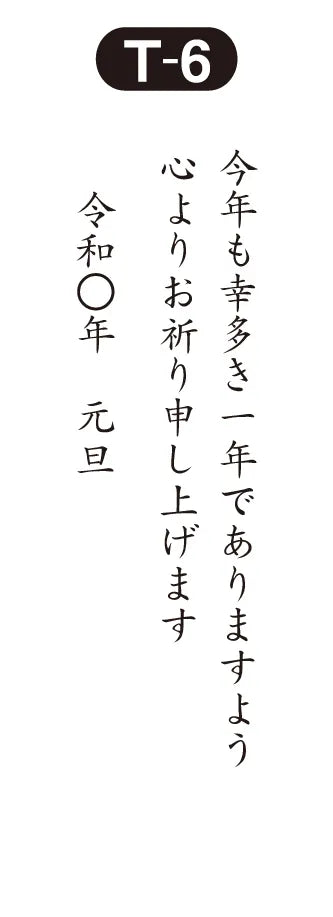 T-6
今年も幸多き一年でありますよう
心よりお祈り申し上げます
令和〇年　元旦